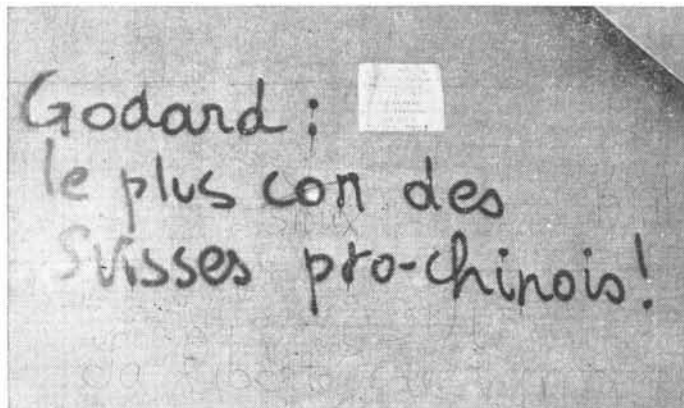 Godard :
le plus con des
Suisses pro-chinois !